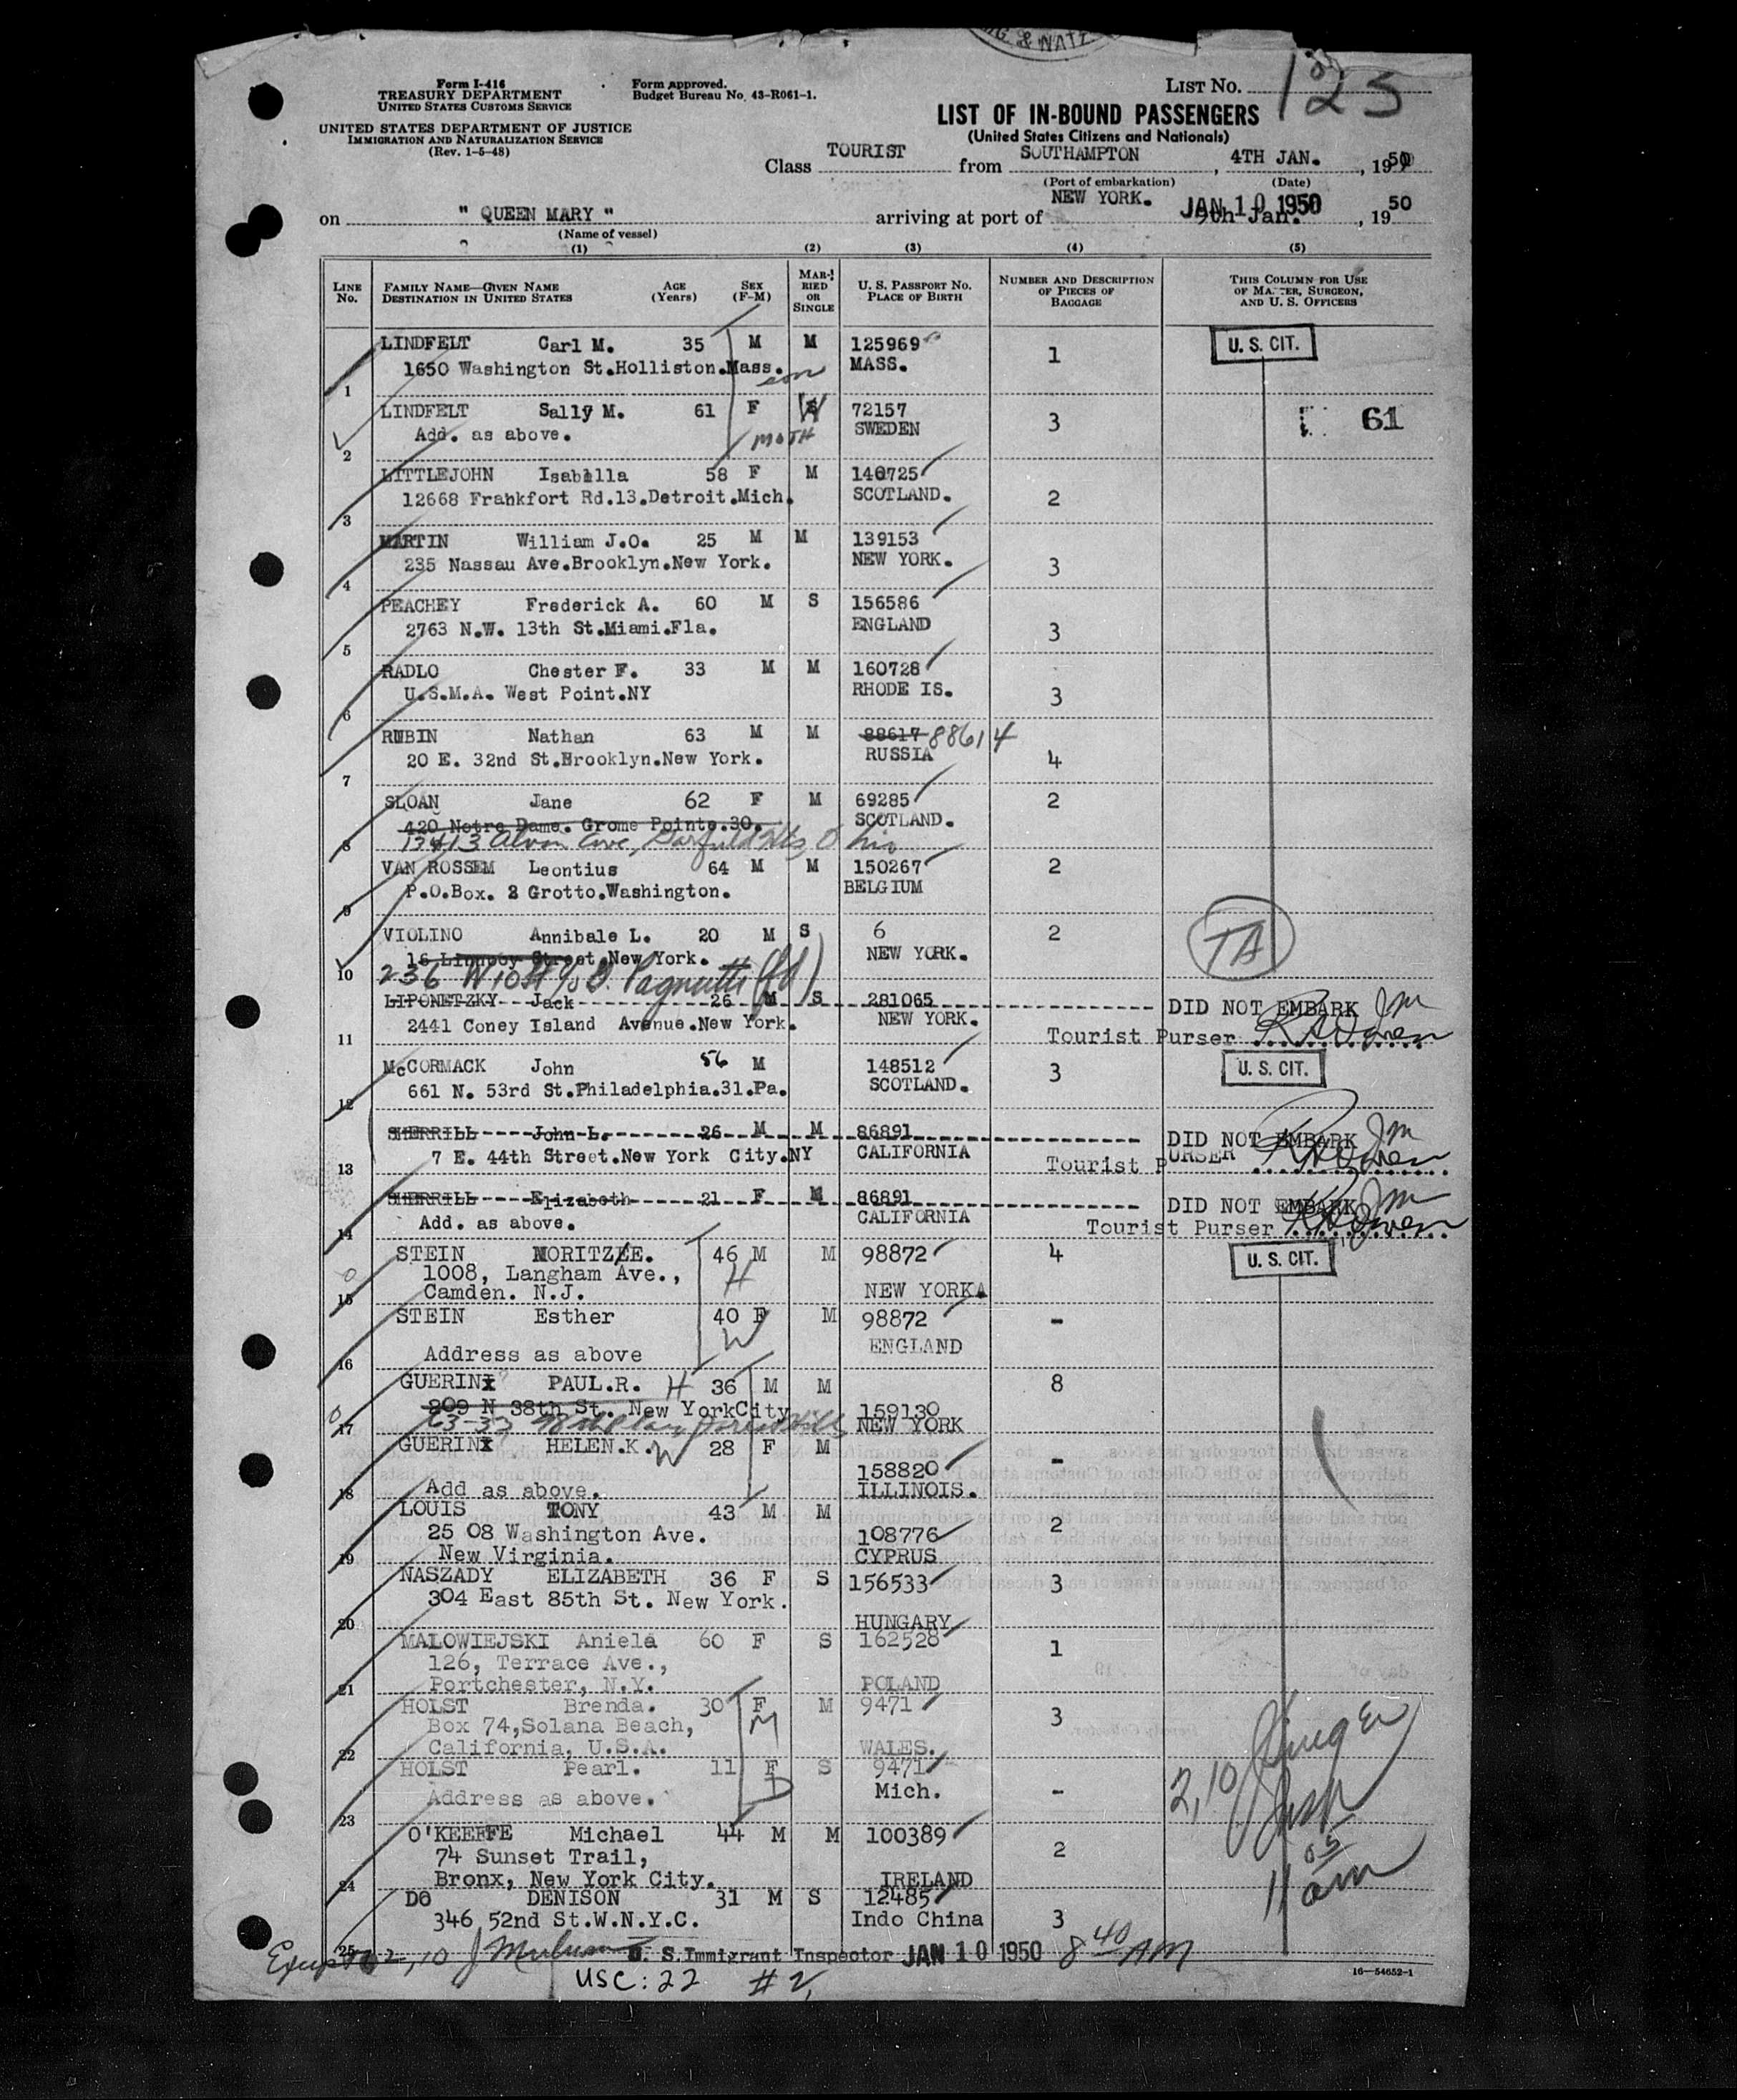 G & NATZ
Form I-416
TREASURY DEPARTMENT
UNITED STATES CUSTOMS SERVICE
UNITED STATES DEPARTMENT OF JUSTICE
IMMIGRATION AND NATURALIZATION SERVICE
(Rev. 1-5-48)
Form approved.
Budget Bureau No. 43-R061-1.
LIST NO. 125
LIST OF IN-BOUND PASSENGERS
(United States Citizens and Nationals)
Class TOURIST from SOUTHAMPTON, 4TH JAN., 1950
(Port of embarkation) (Date)
on " QUEEN MARY " arriving at port of NEW YORK. JAN 10 1950 9th Jan., 1950
(Name of vessel)
(1) (2) (3) (4) (5)
LINE NO. FAMILY NAME—GIVEN NAME DESTINATION IN UNITED STATES AGE (Years) SEX (F-M) MARRIED OR SINGLE U. S. PASSPORT NO. PLACE OF BIRTH NUMBER AND DESCRIPTION OF PIECES OF BAGGAGE THIS COLUMN FOR USE OF MASTER, SURGEON, AND U. S. OFFICERS
LINDFELT Carl M. 35 M M 125969 1 U. S. CIT.
1650 Washington St.Holliston.Mass. son MASS.
1
LINDFELT Sally M. 61 F W 72157 3 61
Add. as above. MOTH SWEDEN
2
LITTLEJOHN Isabella 58 F M 140725 2
12668 Frankfort Rd.13.Detroit.Mich. SCOTLAND.
3
MARTIN William J.O. 25 M M 139153 3
235 Nassau Ave.Brooklyn.New York. NEW YORK.
4
PEACHEY Frederick A. 60 M S 156586 3
2763 N.W. 13th St.Miami.Fla. ENGLAND
5
RADLO Chester F. 33 M M 160728 3
U.S.M.A. West Point.NY RHODE IS.
6
RUBIN Nathan 63 M M 88617 88614 4
20 E. 32nd St.Brooklyn.New York. RUSSIA
7
SLOAN Jane 62 F M 69285 2
420 Notre Dame. Grome Pointe.30. SCOTLAND.
13413 Ohio
8
VAN ROSSEM Leontius 64 M M 150267 2
P.O.Box. 2 Grotto.Washington. BELGIUM
9
VIOLINO Annibale L. 20 M S 6 2 TA
16 Street.New York. NEW YORK.
10 236 W 10 St c/o Pagnutti
LIPONETZKY Jack 26 M S 281065 DID NOT EMBARK
2441 Coney Island Avenue.New York. NEW YORK. Tourist Purser
11
McCORMACK John 56 M 148512 3 U. S. CIT.
661 N. 53rd St.Philadelphia.31.Pa. SCOTLAND.
12
SHERRILL John L. 26 M M 86891 DID NOT EMBARK
7 E. 44th Street.New York City.NY CALIFORNIA Tourist PURSER
13
SHERRILL Elizabeth 21 F M 86891 DID NOT EMBARK
Add. as above. CALIFORNIA Tourist Purser
14
STEIN MORITZ E. 46 M M 98872 4 U. S. CIT.
1008, Langham Ave., H
Camden. N.J. NEW YORK
15
STEIN Esther 40 F M 98872 -
W ENGLAND
Address as above
16
GUERINI PAUL.R. H 36 M M 8
209 N 38th St. New YorkCity 159130
17 NEW YORK
GUERINI HELEN.K. W 28 F M -
158820
Add as above. ILLINOIS.
18
LOUIS TONY 43 M M 2
25 08 Washington Ave. 108776
New Virginia. CYPRUS
19
NASZADY ELIZABETH 36 F S 156533 3
304 East 85th St. New York.
20 HUNGARY
MALOWIEJSKI Aniela 60 F S 162528 1
126, Terrace Ave.,
Portchester, N.Y. POLAND
21
HOLST Brenda. 30 F M 9471 3
Box 74,Solana Beach, M
California, U.S.A. WALES.
22
HOLST Pearl. 11 F S 9471 -
Address as above. D Mich.
23
2,10
O'KEEFFE Michael 44 M M 100389 2
74 Sunset Trail,
Bronx, New York City. IRELAND
24
11 05 am
DO DENISON 31 M S 12485 3
346 52nd St.W.N.Y.C. Indo China
25
2,10 U. S. Immigrant Inspector JAN 10 1950 8 40 AM
USC: 22 #2,
16—54652-1